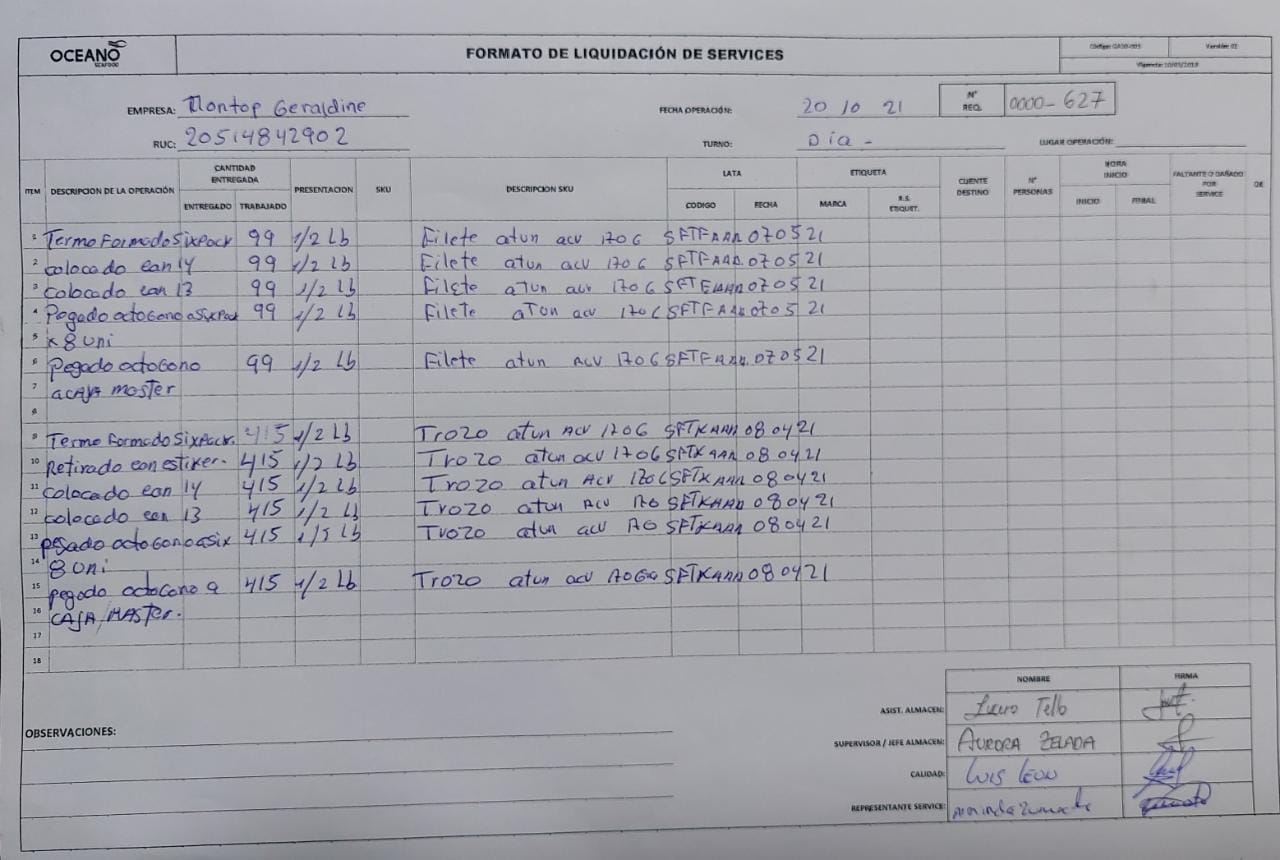 OCEANO SEAFOOD
FORMATO DE LIQUIDACIÓN DE SERVICES
Versión: 01
Vigencia: 10/03/2019
EMPRESA: Montop Geraldine FECHA OPERACIÓN: 20 10 21 N° REQ. 0000-627
RUC: 20514842902 TURNO: Día - LUGAR OPERACIÓN:
ITEM DESCRIPCION DE LA OPERACIÓN CANTIDAD ENTREGADA PRESENTACION SKU DESCRIPCION SKU LATA ETIQUETA CLIENTE DESTINO N° PERSONAS HORA INICIO FALTANTE O DAÑADO POR SERVICE DE
ENTREGADO TRABAJADO CODIGO FECHA MARCA R.S. ETIQUET. INICIO FINAL
1 Termo Formado SixPack 99 1/2 Lb Filete atun acv 170 G SFTFAAN 070521
2 colocado ean 14 99 1/2 Lb Filete atun acv 170 G SFTFAAN 070521
3 colocado ean 13 99 1/2 Lb Filete atun acv 170 G SFTFAAN 070521
4 Pegado octogono a SixPack 99 1/2 Lb Filete aTun acv 170 G SFTFAAN 070521
5 x 8 uni
6 Pegado octogono 99 1/2 Lb Filete atun acv 170 G SFTFAAN 070521
7 a CAJA master
8
9 Termo Formado SixPack. 415 1/2 Lb Trozo atun Acv 170 G SFTKAAN 080421
10 Retirado con estiker. 415 1/2 Lb Trozo atun acv 170 G SFTKAAN 080421
11 colocado ean 14 415 1/2 Lb Trozo atun Acv 170 G SFTKAAN 080421
12 colocado ean 13 415 1/2 Lb Trozo atun Acv 170 SFTKAAN 080421
13 pegado octogono a six 415 Lb Trozo atun acv 170 SFTKAAN 080421
14 8 uni
15 pegado octogono a 415 1/2 Lb Trozo atun acv SFTKAAN 080421
16 CAJA MASTer.
17
18
NOMBRE FIRMA
ASIST. ALMACEN: Tello
SUPERVISOR / JEFE ALMACEN: AURORA ZELADA
CALIDAD: LUIS LEON
REPRESENTANTE SERVICE:
OBSERVACIONES: